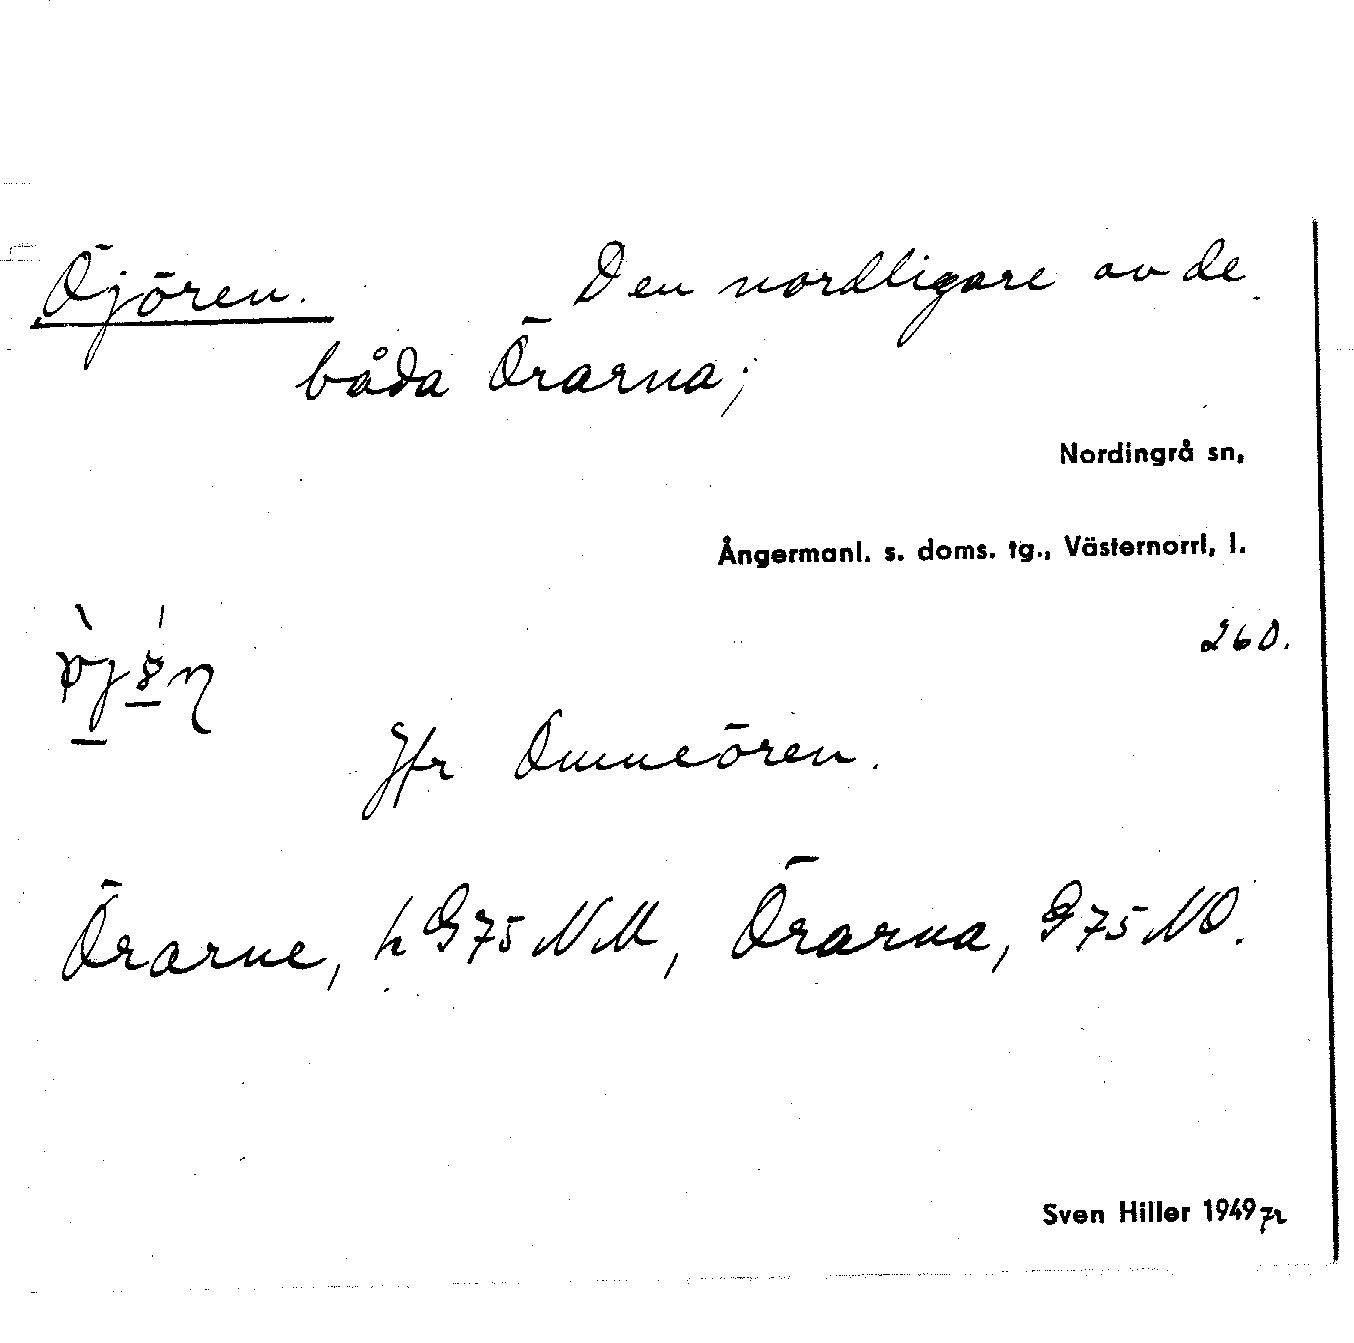 Öjören. Den nordligare av de
båda Örarna;
Nordingrå sn,
Ångermanl. s. doms. tg., Västernorrl, l.
260.
Jfr Omneören.
Örarne, h G75 NM, Örarna, G75 NO.
Sven Hiller 1949